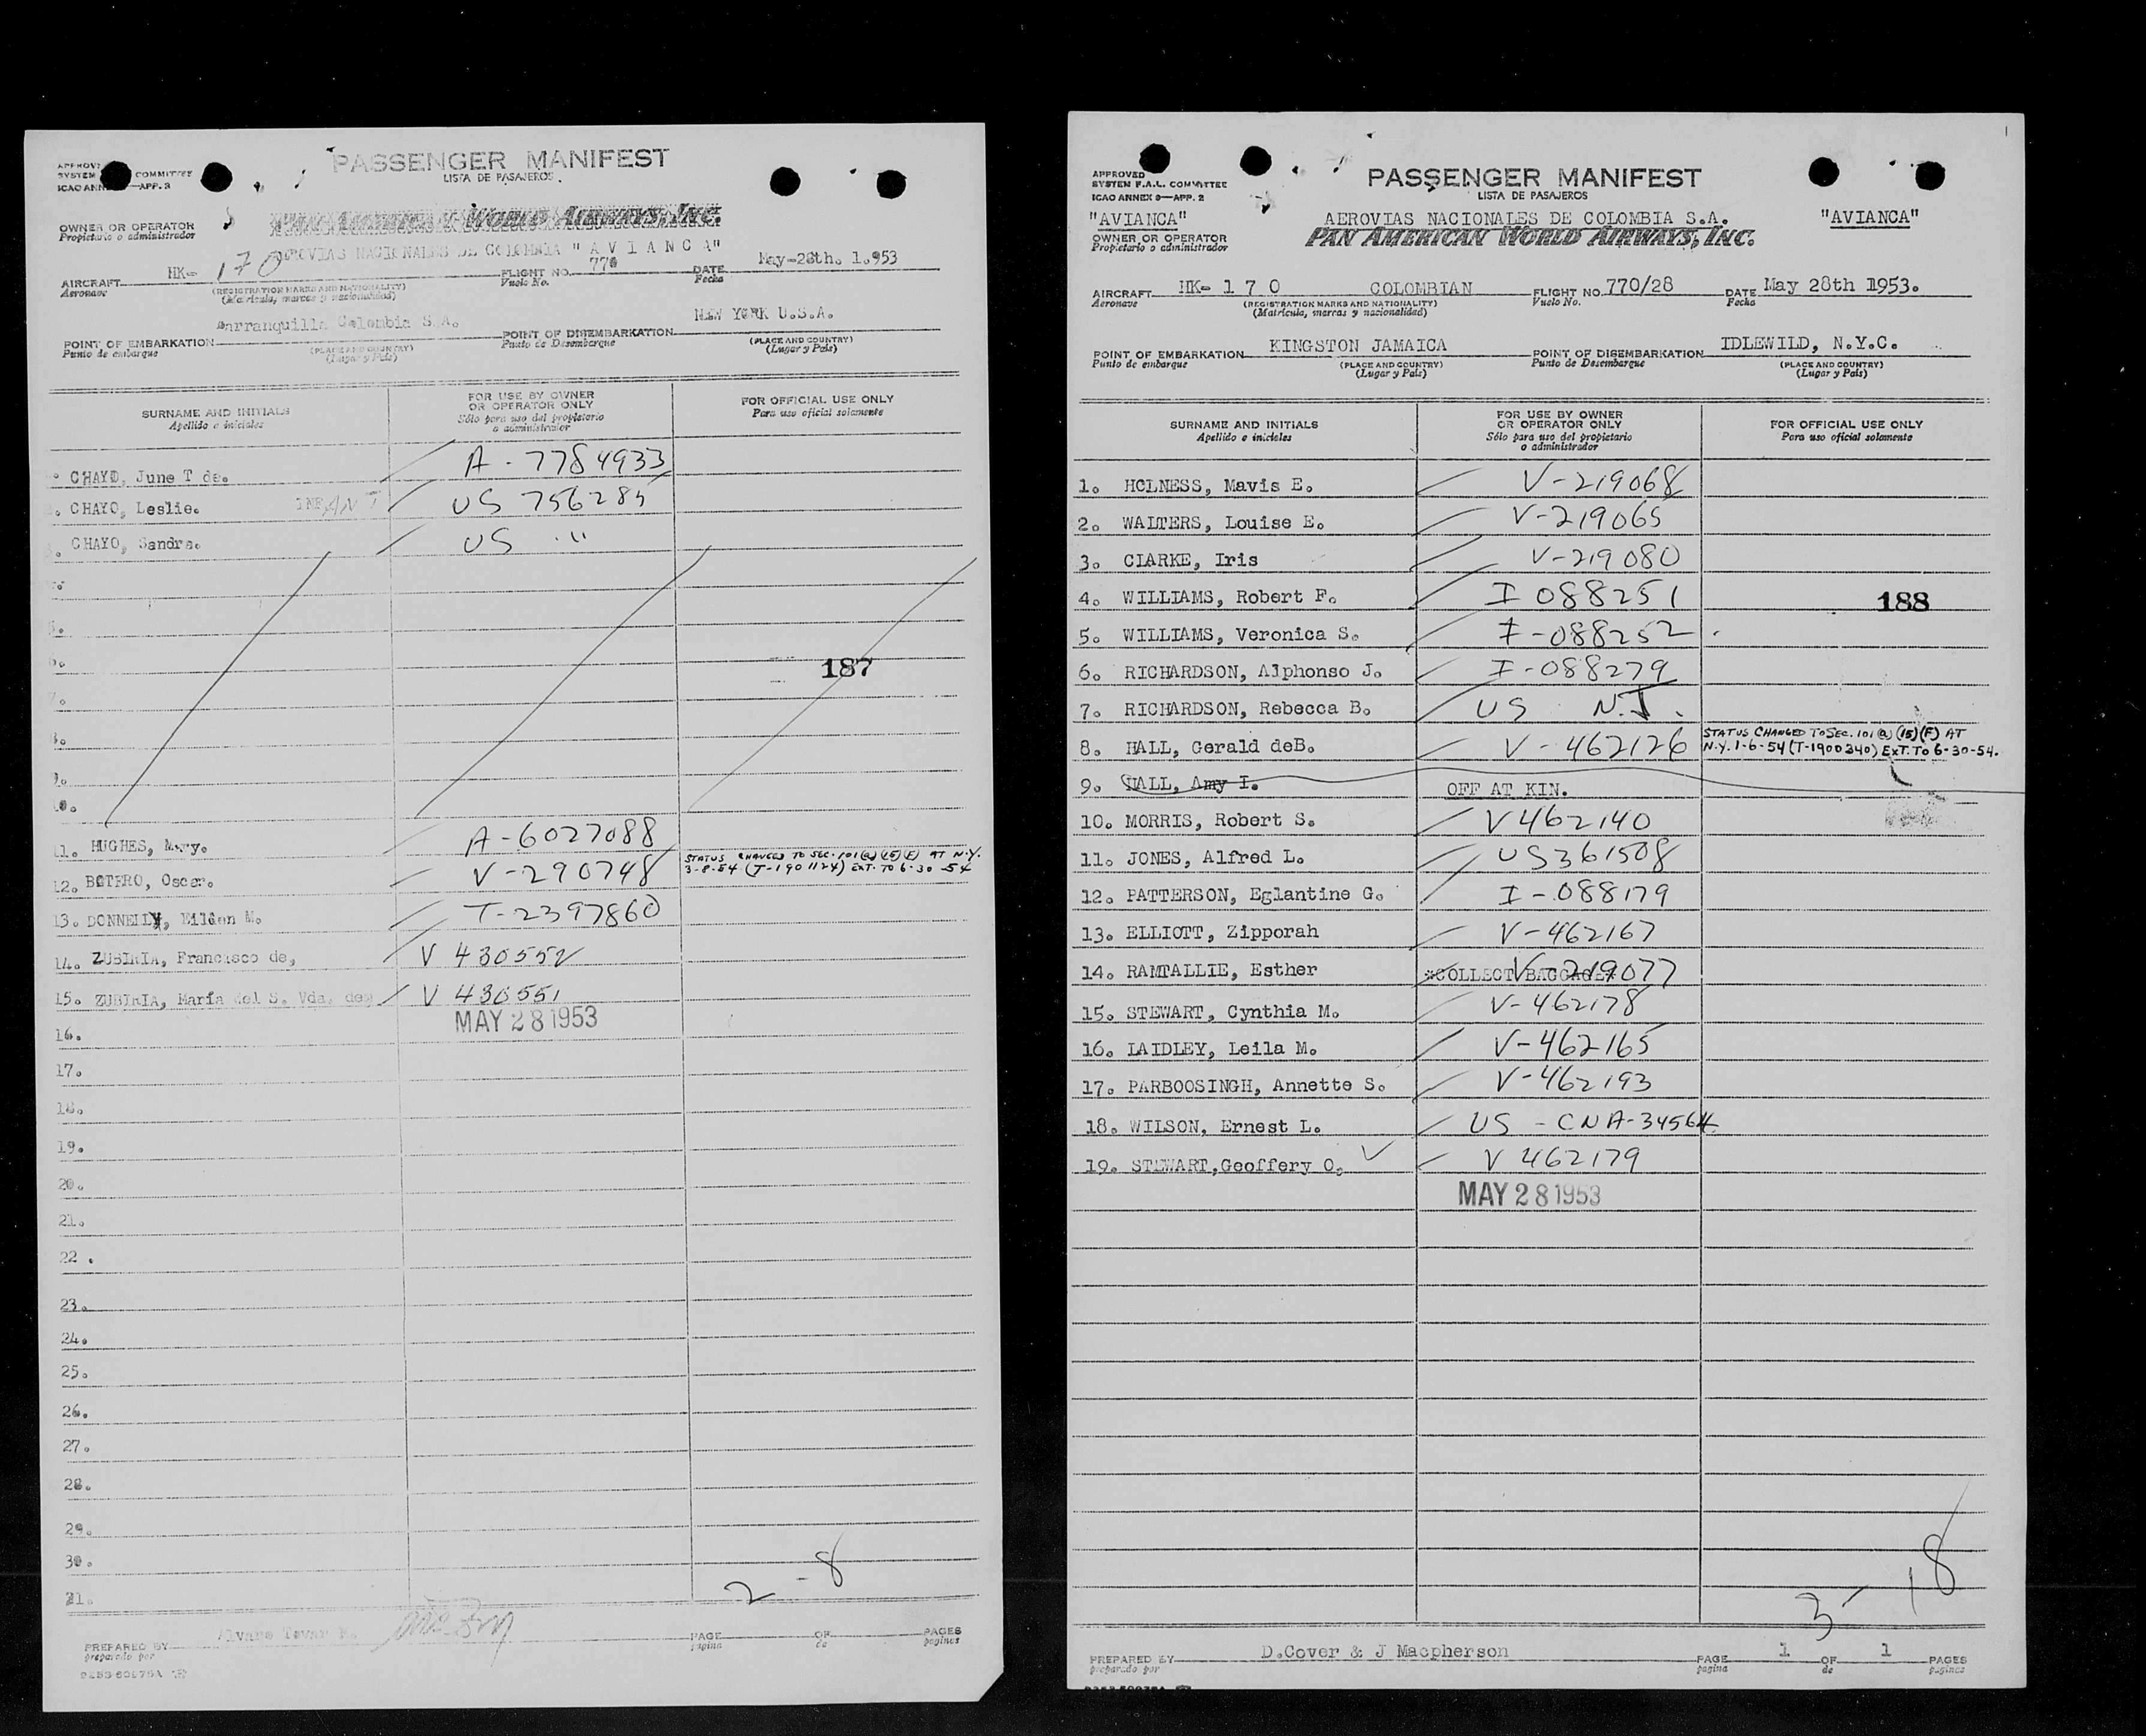 PASSENGER MANIFEST
LISTA DE PASAJEROS.
SYSTEM COMMITTEE
ICAO ANN —APP. 2
OWNER OR OPERATOR
Propietario o administrador
PAN AMERICAN WORLD AIRWAYS, INC.
AEROVIAS NACIONALES DE COLOMBIA "A V I A N C A"
AIRCRAFT HK- 170 FLIGHT NO. 770 DATE May-28th. 1.953
Aeronave (REGISTRATION MARKS AND NATIONALITY) Vuelo No. Fecha
(Matrícula, marcas y nacionalidad)
POINT OF EMBARKATION Barranquilla Colombia S.A. POINT OF DISEMBARKATION NEW YORK U.S.A.
Punto de embarque (PLACE AND COUNTRY) Punto de Desembarque (PLACE AND COUNTRY)
(Lugar y País) (Lugar y País)
SURNAME AND INITIALS FOR USE BY OWNER OR OPERATOR ONLY FOR OFFICIAL USE ONLY
Apellido e iniciales Sólo para uso del propietario o administrador Para uso oficial solamente
CHAYO, June T de. A-7784933
CHAYO, Leslie. INFANT US 756285
3. CHAYO, Sandra. US "
5.
6. 187
7.
8.
9.
10.
11. HUGHES, Mary. A-6027088
12. BOTERO, Oscar. V-290748 STATUS CHANGED TO SEC. 101(a)(15)(F) AT N.Y.
3-8-54 (T-1901124) EXT. TO 6-30-54
13. DONNELLY, Eileen M. T-2397860
14. ZUBIRIA, Francisco de, V 430552
15. ZUBIRIA, María del S. Vda. de V 430551
16. MAY 28 1953
17.
18.
19.
20.
21.
22.
23.
24.
25.
26.
27.
28.
29.
30.
31. 2-8
PREPARED BY Alvaro Tovar PAGE OF PAGES
preparado por página de páginas
PASSENGER MANIFEST
LISTA DE PASAJEROS
APPROVED
SYSTEM F.A.L. COMMITTEE
ICAO ANNEX 9—APP. 2
"AVIANCA" AEROVIAS NACIONALES DE COLOMBIA S.A. "AVIANCA"
OWNER OR OPERATOR PAN AMERICAN WORLD AIRWAYS, INC.
Propietario o administrador
AIRCRAFT HK- 1 7 0 COLOMBIAN FLIGHT NO. 770/28 DATE May 28th 1953.
Aeronave (REGISTRATION MARKS AND NATIONALITY) Vuelo No. Fecha
(Matrícula, marcas y nacionalidad)
POINT OF EMBARKATION KINGSTON JAMAICA POINT OF DISEMBARKATION IDLEWILD, N.Y.C.
Punto de embarque (PLACE AND COUNTRY) Punto de Desembarque (PLACE AND COUNTRY)
(Lugar y País) (Lugar y País)
SURNAME AND INITIALS FOR USE BY OWNER OR OPERATOR ONLY FOR OFFICIAL USE ONLY
Apellido e iniciales Sólo para uso del propietario o administrador Para uso oficial solamente
1. HOLNESS, Mavis E. V-219068
2. WALTERS, Louise E. V-219065
3. CLARKE, Iris V-219080
4. WILLIAMS, Robert F. I 088251 188
5. WILLIAMS, Veronica S. I-088252
6. RICHARDSON, Alphonso J. I-088279
7. RICHARDSON, Rebecca B. US N.J.
8. HALL, Gerald deB. V-462126 STATUS CHANGED TO SEC. 101(a)(15)(F) AT
N.Y. 1-6-54 (T-1900340) EXT. TO 6-30-54.
9. HALL, Amy I. OFF AT KIN.
10. MORRIS, Robert S. V462140
11. JONES, Alfred L. US361508
12. PATTERSON, Eglantine G. I-088179
13. ELLIOTT, Zipporah V-462167
14. RAMTALLIE, Esther *COLLECT BAGGAGE* V-219077
15. STEWART, Cynthia M. V-462178
16. LAIDLEY, Leila M. V-462165
17. PARBOOSINGH, Annette S. V-462193
18. WILSON, Ernest L. US - CNA-34564
19. STEWART,Geoffery O. V 462179
MAY 28 1953
3-18
PREPARED BY D.Cover & J Macpherson PAGE 1 OF 1 PAGES
preparado por página de páginas